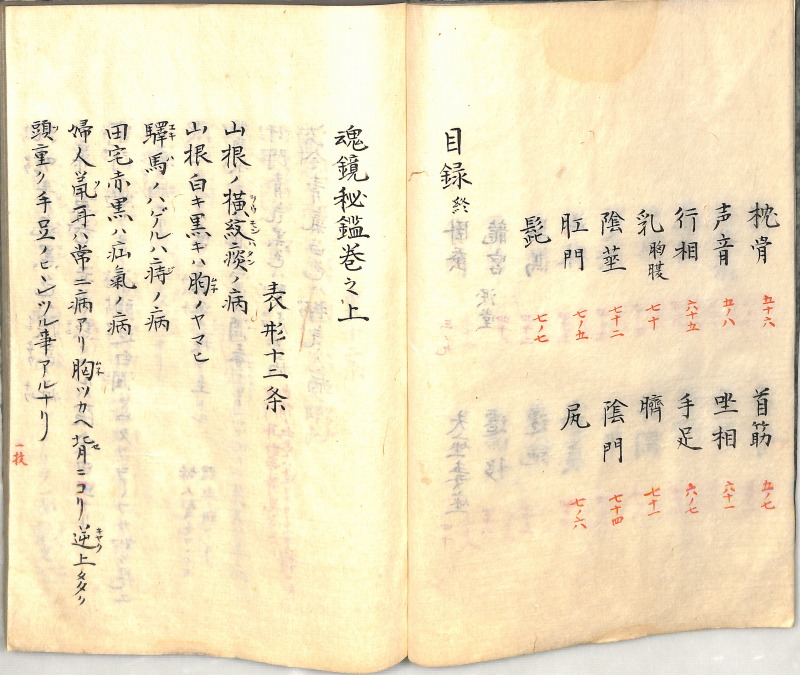 枕骨 五十六 首筋 五ノ七
声音 五ノ八 坐相 六十一
行相 六十五 手足 六ノ七
乳 胸腹 七十 臍 七十一
陰莖 七十二 陰門 七十四
肛門 七ノ五 尻 七ノ六
髭 七ノ七
目録 終
魂鏡秘鑑巻之上
表形十二条
山根ノ横紋ハ痰ノ病
山根白キ黒キハ胸ノヤマヒ
驛馬ノハゲルハ痔ノ病
田宅赤黒ハ疝氣ノ病
婦人鼠耳ハ常ニ病アリ胸ツカヘ背ニコリ逆上多シ
頭重ク手足ノヒンツル事アルナリ
一枚